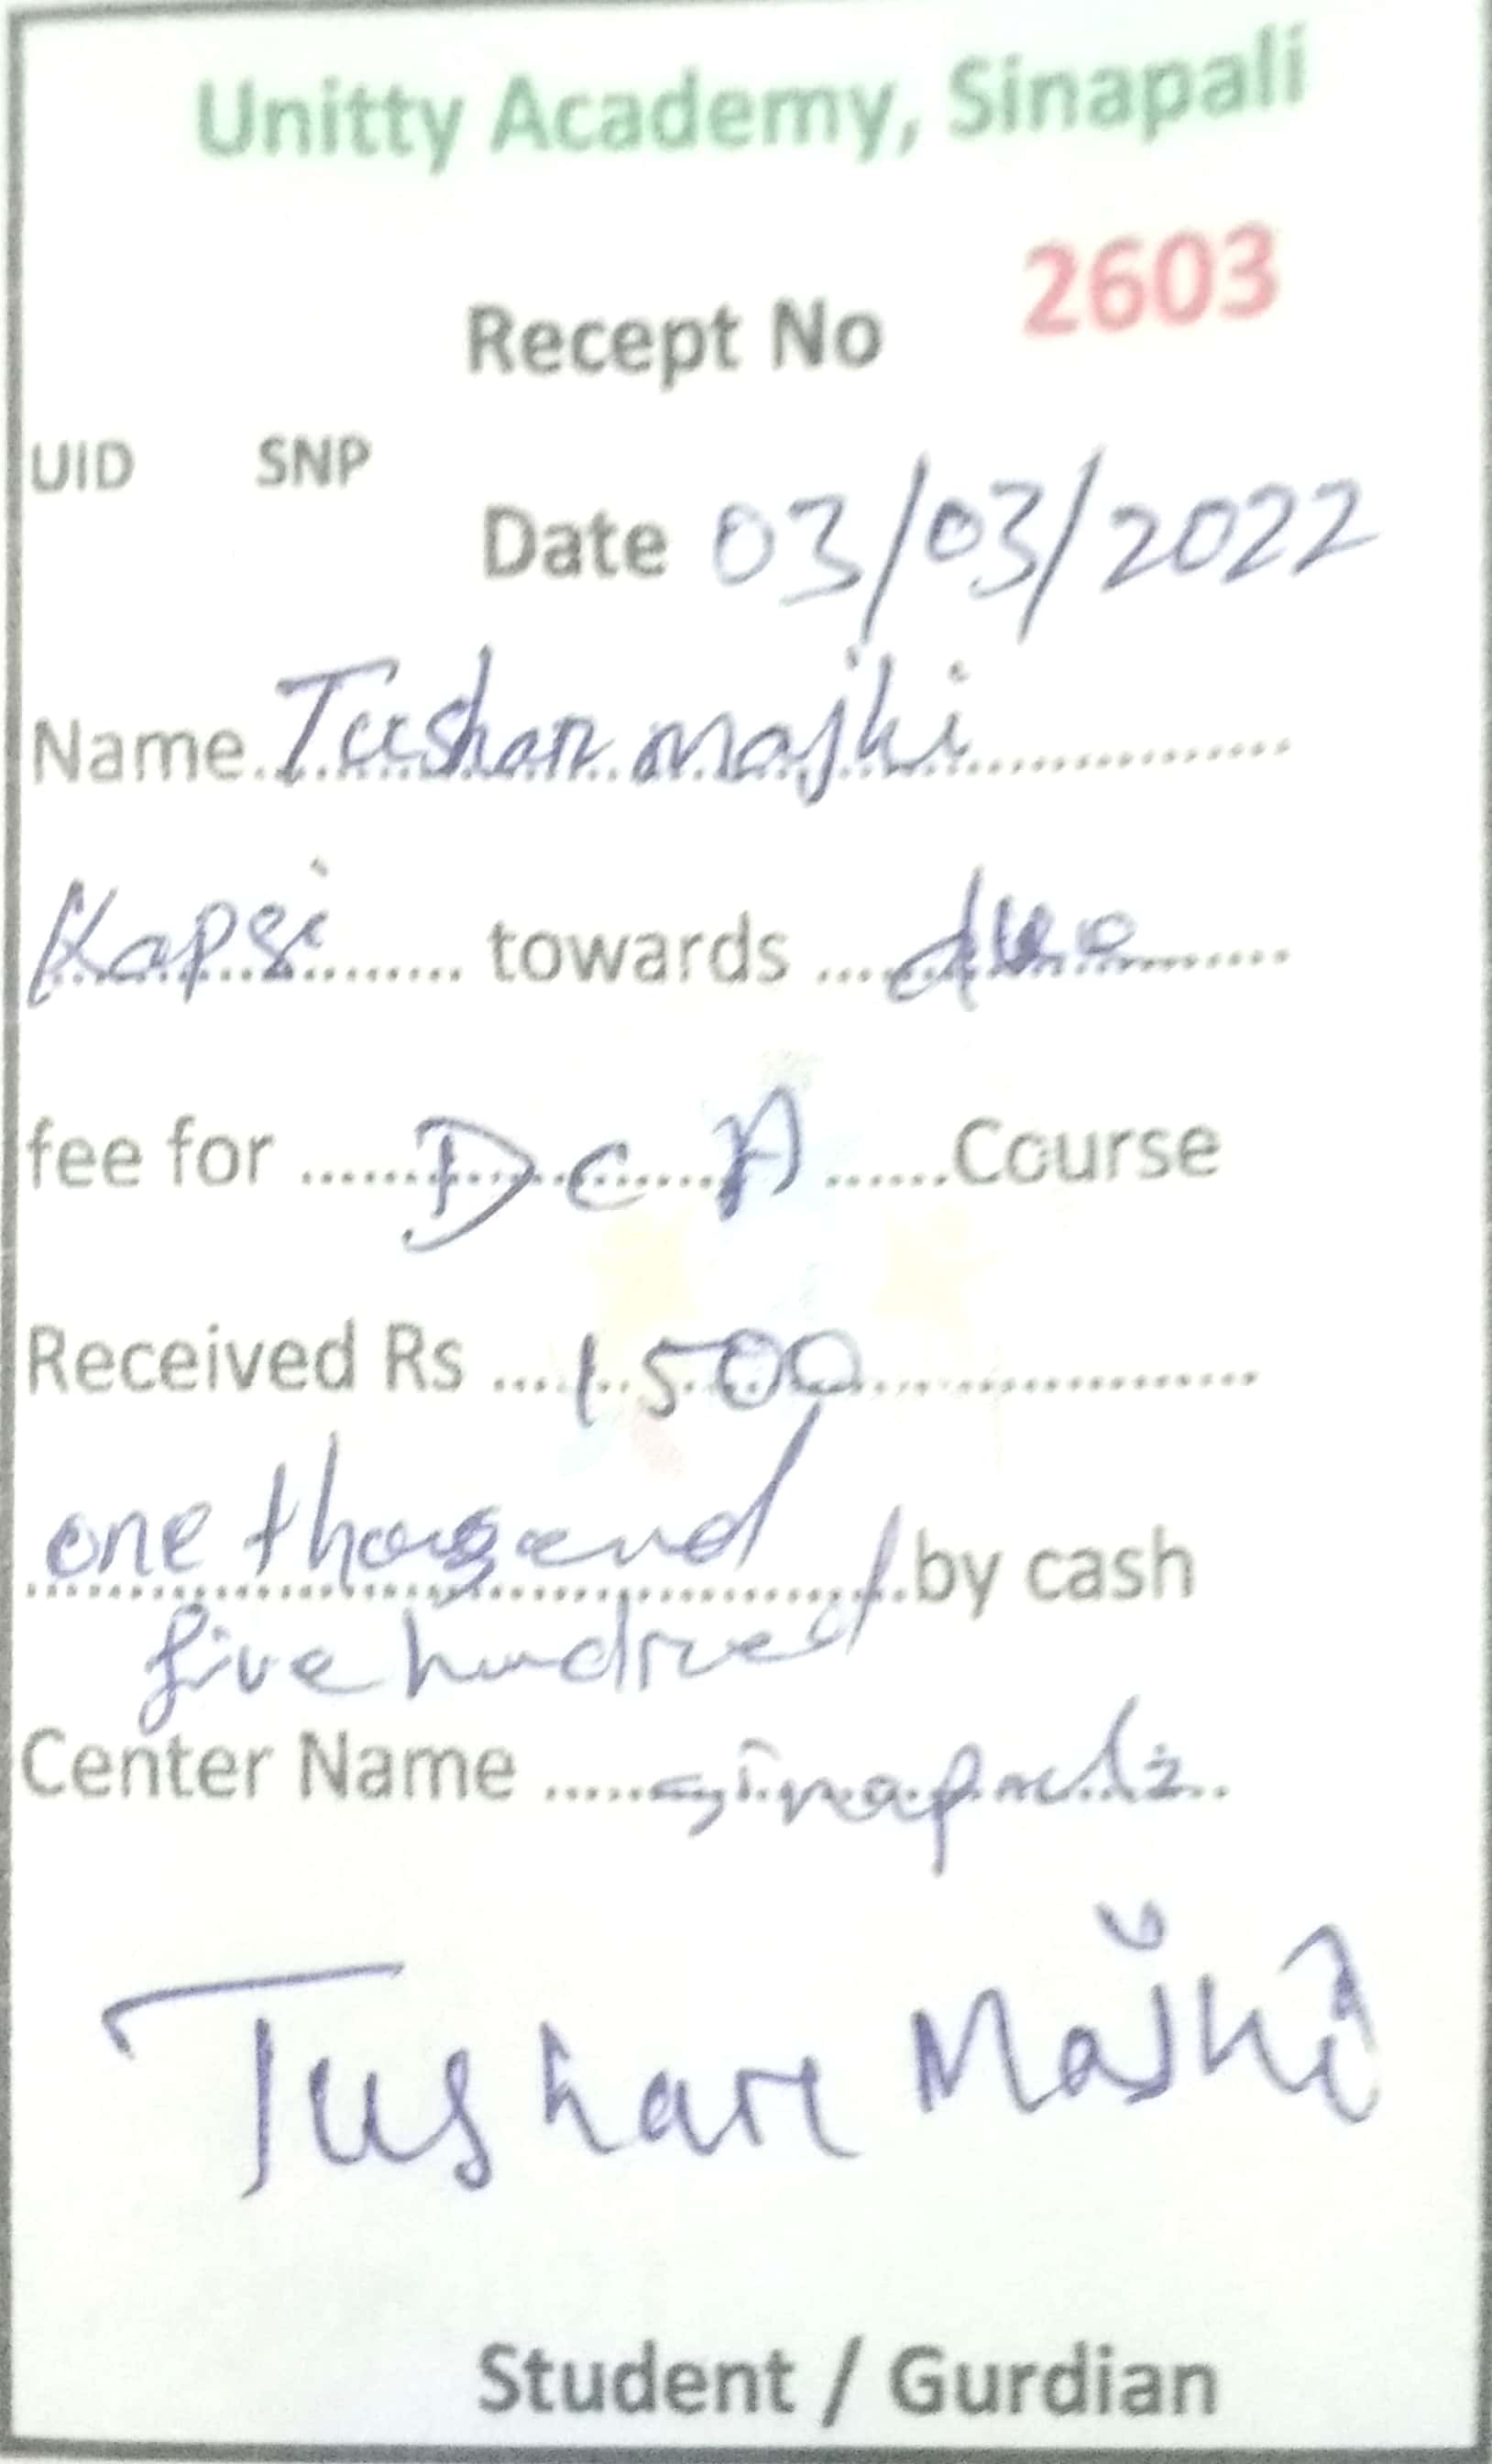 Unitty Academy, Sinapali
Recept No 2603
UID SNP
Date 03/03/2022
Name Tushar majhi
Kapsi towards due
fee for DCA Course
Received Rs 1500
one thousand by cash
five hundred
Center Name sinapali
Tushar Majhi
Student / Gurdian